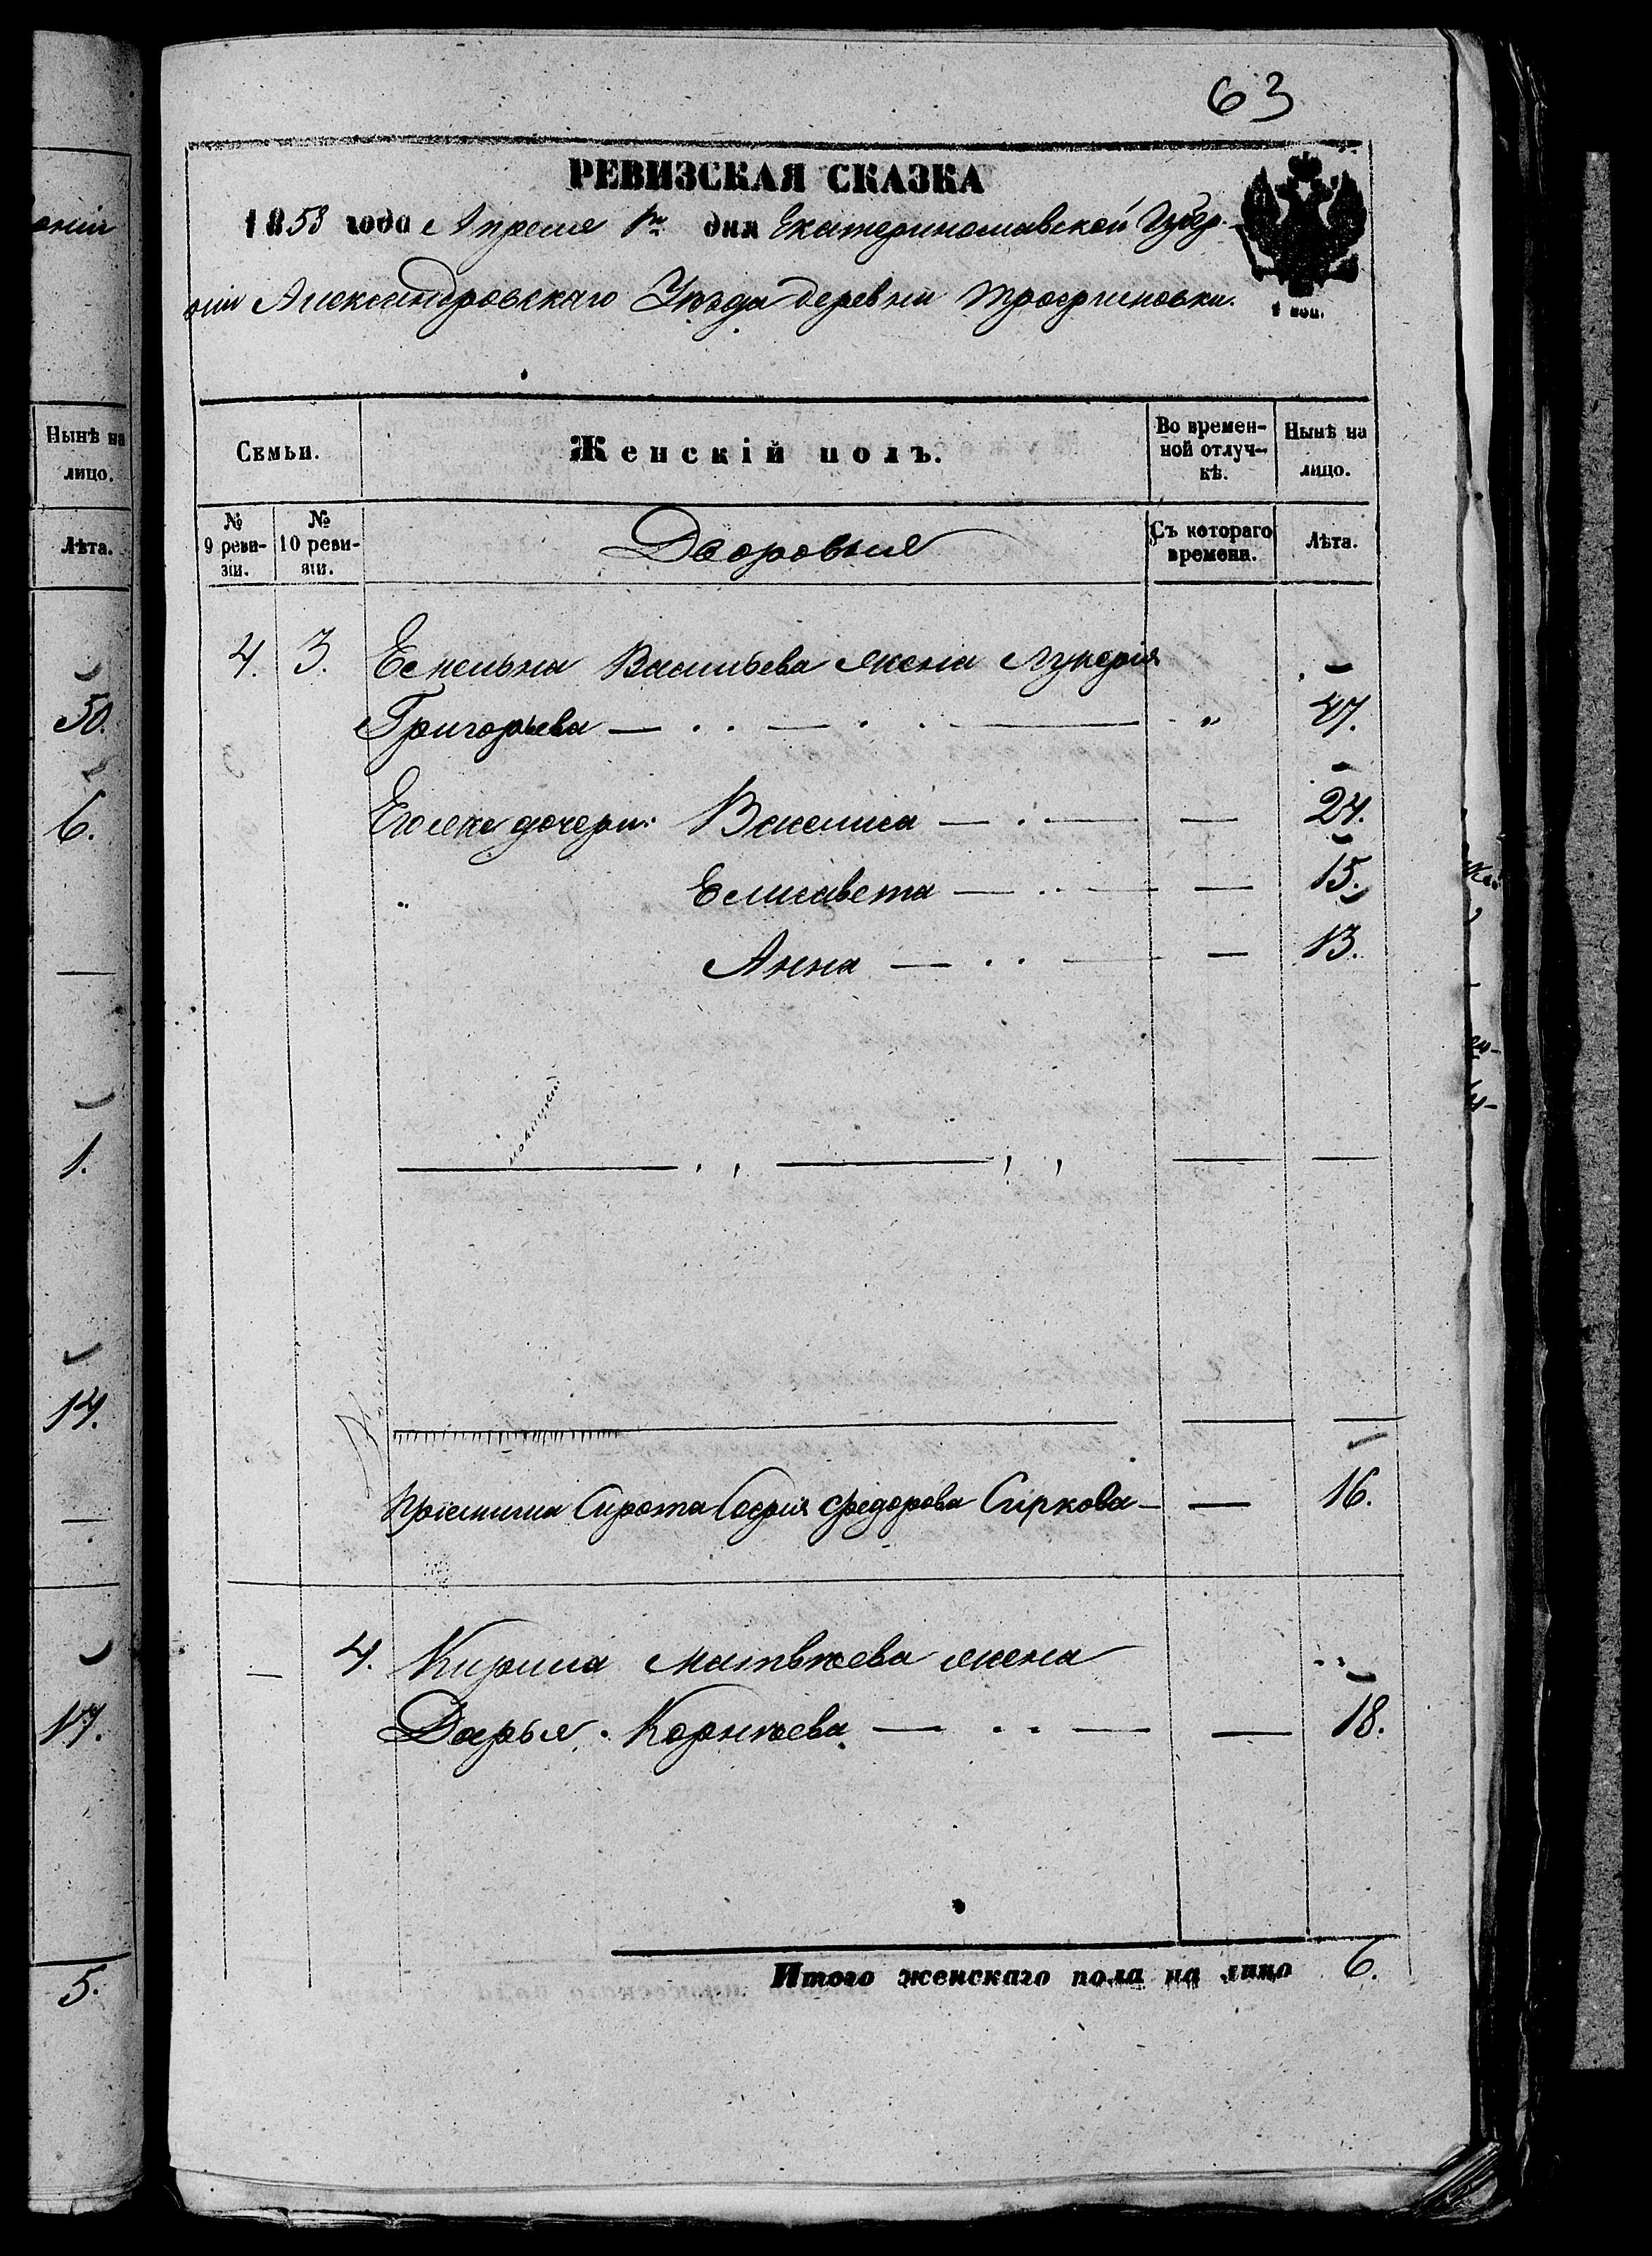 63
РЕВИЗСКАЯ СКАЗКА
1853 года Апреля 1го дня Екатеринославской Губер-
ніи Александровскаго Уѣзда деревни Трофимовки.
1 коп.
Семьи.
Женскій полъ.
Во времен-
ной отлуч-
кѣ.
Нынѣ на
лицо.
№
9 реви-
зіи.
№
10 реви-
зіи.
Дворовые
Съ котораго
времени.
Лѣта.
4. 3. Емельяна Васильева жена Лукерія
Григорьева — . . — . . — „ 47.
Его же дочери: Василиса — . — — 24.
„ Елисавета — .. — — 15.
Анна — .. — — 13.
Пріемыша Сирота Софія Федорова Сиркова — — 16.
— 4. Кирила Матвѣева жена
Дарья Корнѣева — . . — — 18.
Итого женскаго пола на лицо 6.
Нынѣ на
лицо.
Лѣта.
50.
6.
1.
14.
17.
5.